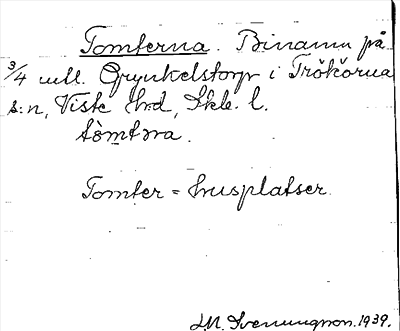 Tomterna. Binamn på
3/4 mtl. Grynkelstorp i Trökörna
s:n, Viste hrd, Skb. l.
tòmtəra.
Tomter = husplatser.
J.M. Svenungson. 1939.